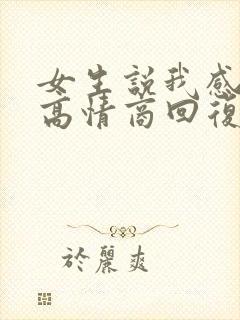 女生説我感
高情商回復
於麗爽